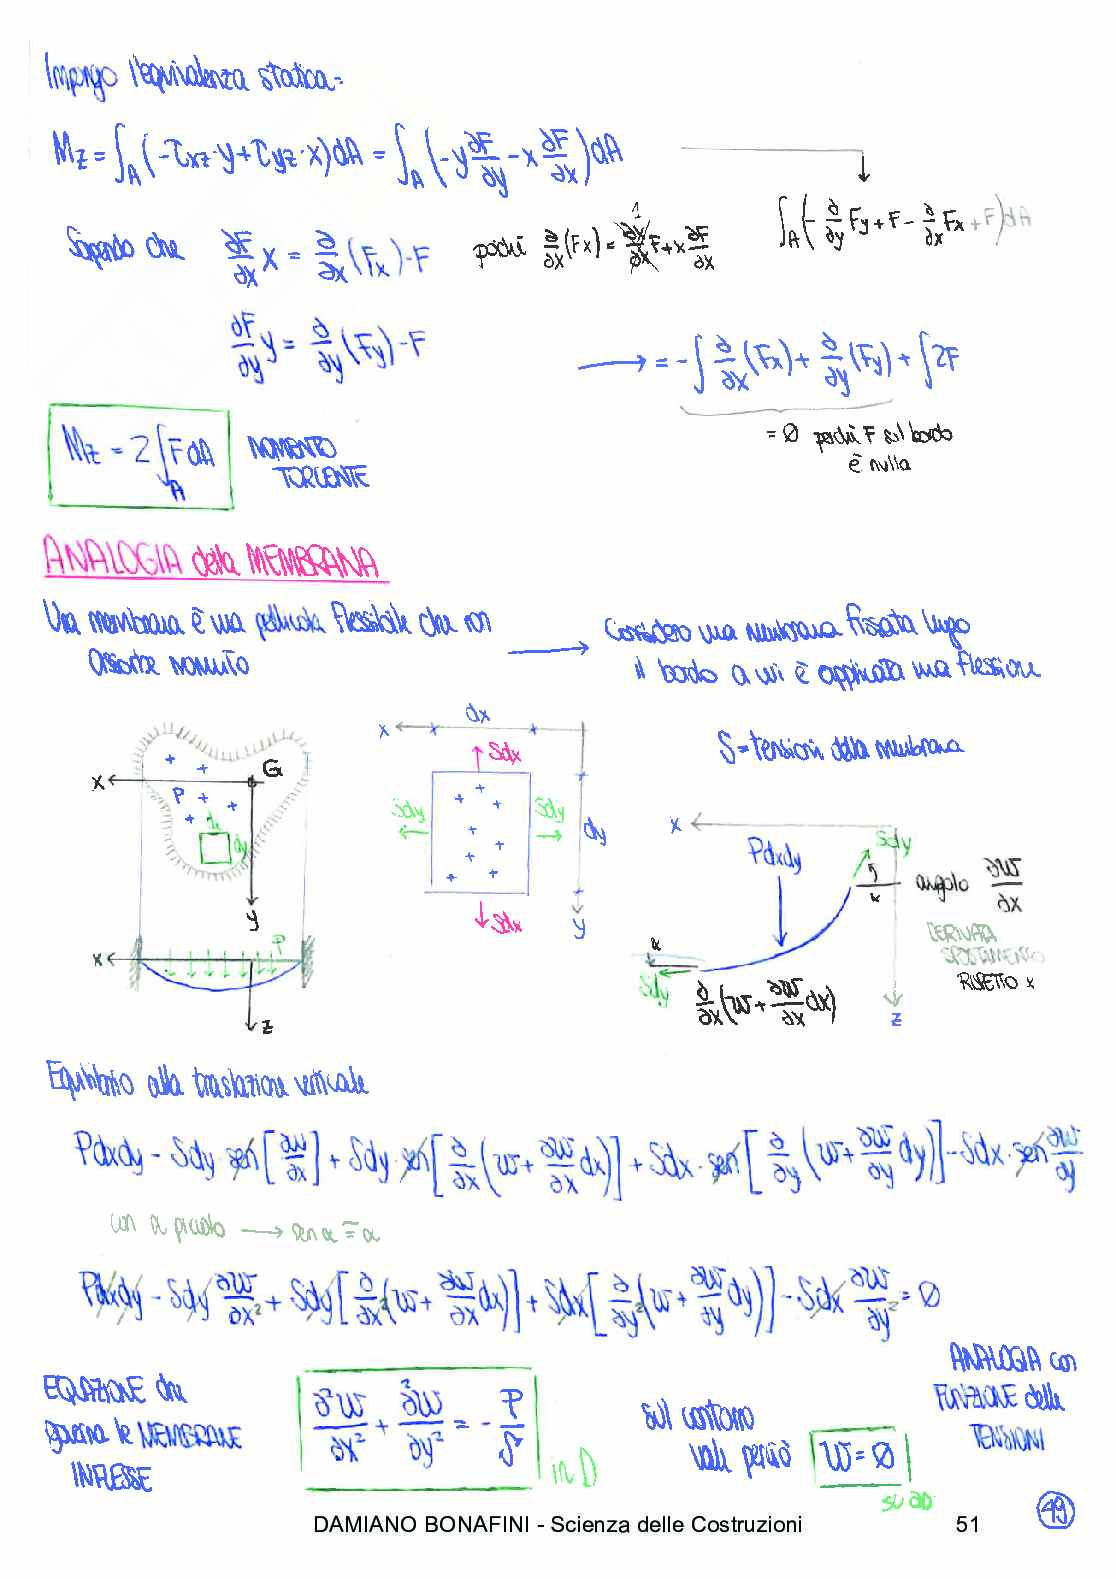 Impongo l'equivalenza statica:
Mz = ∫A (-τxz·y + τyz·x)dA = ∫A (-y ∂F/∂y - x ∂F/∂x)dA
∫A (- ∂/∂y Fy + F - ∂/∂x Fx + F)dA
Sapendo che ∂F/∂x x = ∂/∂x (Fx) - F perchè ∂/∂x (Fx) = ∂x/∂x F + x ∂F/∂x
1
∂F/∂y y = ∂/∂y (Fy) - F
→ = - ∫ ∂/∂x (Fx) + ∂/∂y (Fy) + ∫ 2F
= Ø perchè F sul bordo
è nulla
Mz = 2 ∫A F dA MOMENTO
TORCENTE
ANALOGIA della MEMBRANA
Una membrana è una pellicola flessibile che non
assorbe momento
→ Considero una membrana fissata lungo
il bordo a cui è applicata una flessione
S = tensioni della membrana
x G
P
dx
dy
y
x P
z
x dx
Sdx
Sdy Sdy dy
Sdx y
x
Pdxdy Sdy
α angolo ∂w/∂x
DERIVATA
SPOSTAMENTO
RISPETTO x
α
Sdy ∂/∂x (w + ∂w/∂x dx)
z
Equilibrio alla traslazione verticale
Pdxdy - Sdy·sen[∂w/∂x] + Sdy·sen[∂/∂x (w + ∂w/∂x dx)] + Sdx·sen[∂/∂y (w + ∂w/∂y dy)] - Sdx·sen ∂w/∂y
con α piccolo → sen α ≅ α
Pdxdy - Sdy ∂w/∂x² + Sdy[∂/∂x² (w + ∂w/∂x dx)] + Sdx[∂/∂y² (w + ∂w/∂y dy)] - Sdx ∂w/∂y² = Ø
EQUAZIONE che
governa le MEMBRANE
INFLESSE
∂²w/∂x² + ∂²w/∂y² = - P/S in D
sul contorno
vale perciò w = Ø
su ∂D
ANALOGIA con
FUNZIONE delle
TENSIONI
DAMIANO BONAFINI - Scienza delle Costruzioni 51
49